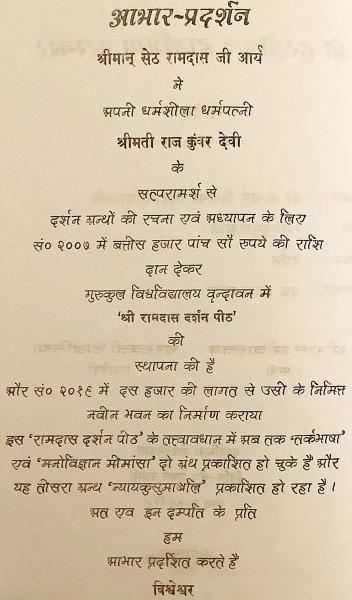 आभार-प्रदर्शन
श्रीमान् सेठ रामदास जी आर्य
ने
अपनी धर्मशीला धर्मपत्नी
श्रीमती राज कुंवर देवी
के
सत्परामर्श से
दर्शन ग्रन्थों की रचना एवं अध्यापन के लिए
सं० २००७ में बत्तीस हजार पांच सौ रुपये की राशि
दान देकर
गुरुकुल विश्वविद्यालय वृन्दावन में
‘श्री रामदास दर्शन पीठ’
की
स्थापना की है
और सं० २०१९ में दस हजार की लागत से उसी के निमित्त
नवीन भवन का निर्माण कराया
इस ‘रामदास दर्शन पीठ’ के तत्त्वावधान में अब तक ‘तर्कभाषा’
एवं ‘मनोविज्ञान मीमांसा’ दो ग्रंथ प्रकाशित हो चुके हैं और
यह तीसरा ग्रन्थ ‘न्यायकुसुमाञ्जलि’ प्रकाशित हो रहा है।
अत एव इन दम्पति के प्रति
हम
आभार प्रदर्शित करते हैं
विश्वेश्वर